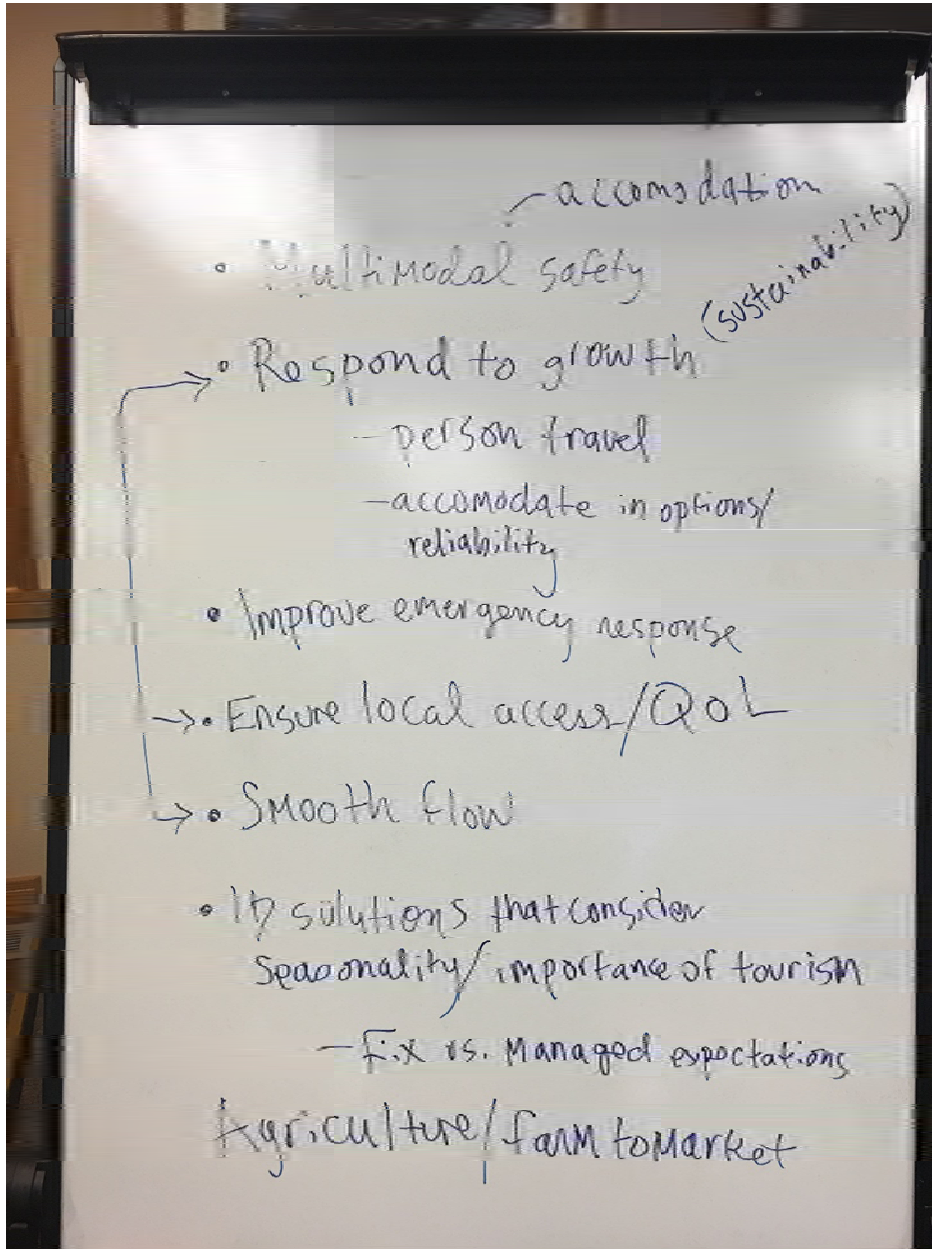 accomodation
• Multimodal safety
(sustainability)
• Respond to growth
- person travel
- accomodate in options/
reliability
• Improve emergency response
→ • Ensure local access/QoL
→ • Smooth flow
• ID solutions that consider
seasonality/importance of tourism
- Fix vs. Managed expectations
Agriculture/farm to Market